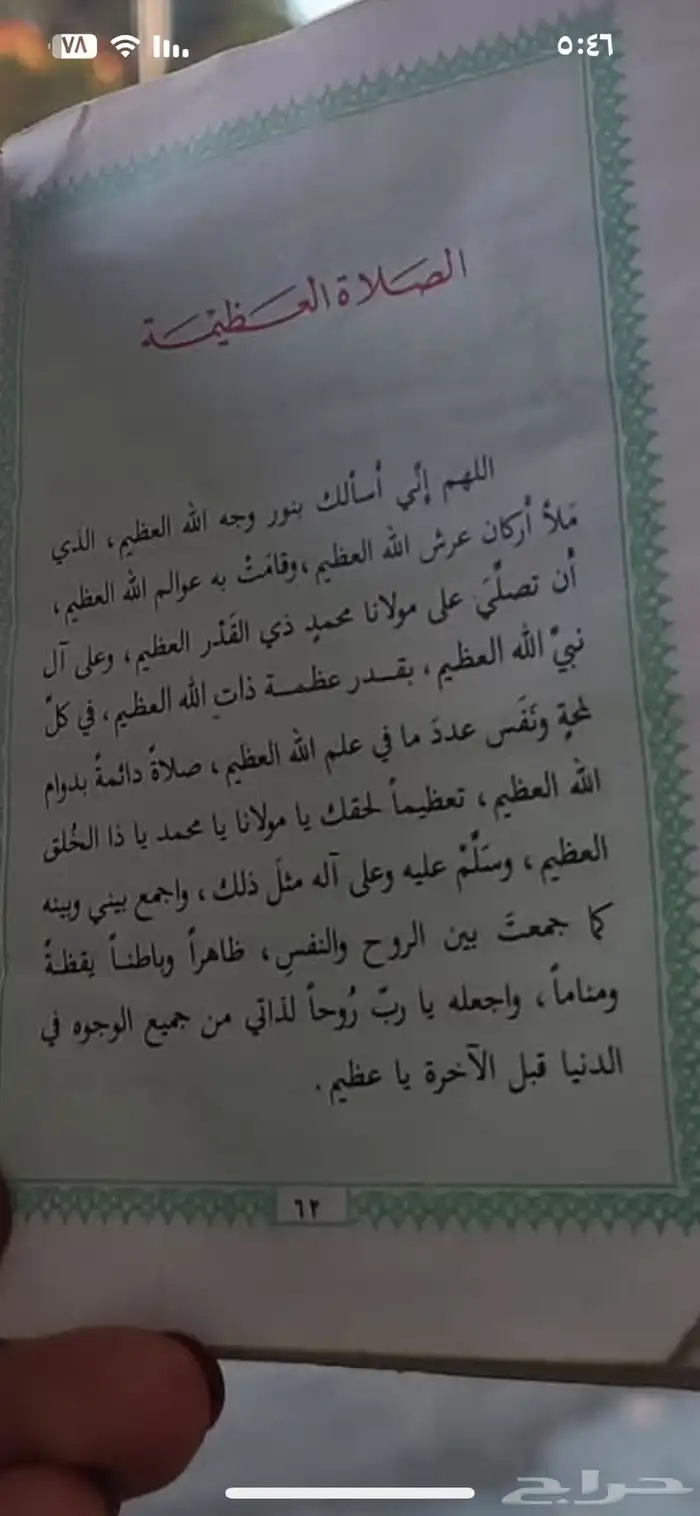 ٧٨
٥:٤٦
الصلاة العظيمة
اللهم إنّي أسألك بنور وجه الله العظيم، الذي
مَلأ أركان عرش الله العظيم، وقامَتْ به عوالم الله العظيم،
أن تصلّيَ على مولانا محمدٍ ذي القَدْر العظيم، وعلى آل
نبيّ الله العظيم، بقدر عظمة ذاتِ الله العظيم، في كلّ
لمحةٍ ونَفَس عددَ ما في علم الله العظيم، صلاةً دائمةً بدوام
الله العظيم، تعظيماً لحقك يا مولانا يا محمد يا ذا الخُلق
العظيم، وسَلّمْ عليه وعلى آله مثلَ ذلك، واجمع بيني وبينه
كما جمعتَ بين الروح والنفسِ، ظاهراً وباطناً يقظةً
ومناماً، واجعله يا ربّ رُوحاً لذاتي من جميع الوجوه في
الدنيا قبل الآخرة يا عظيم.
٦٢
حراج